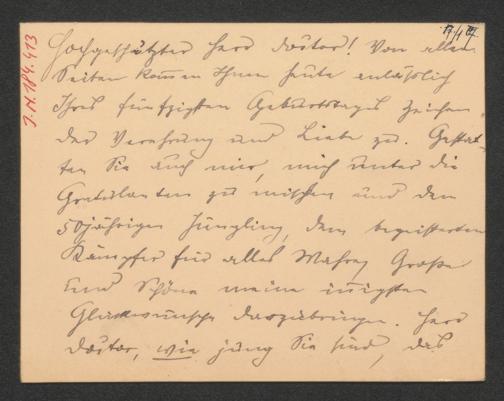 17/1 III.
Hochgeschätzter Herr Doctor! Von allen
Seiten kommen Ihnen heute anläßlich
Ihres fünfzigsten Geburtstages Zeichen
der Verehrung und Liebe zu. Gestat-
ten Sie auch mir, mich unter die
Gratulanten zu mischen und dem
50jährigen Jüngling, dem begeisterten
Kämpfer für alles Wahre, Große
und Schöne meine innigsten
Glückwünsche darzubringen. Herr
Doctor, wie jung Sie sind, das
J.N. 184.413